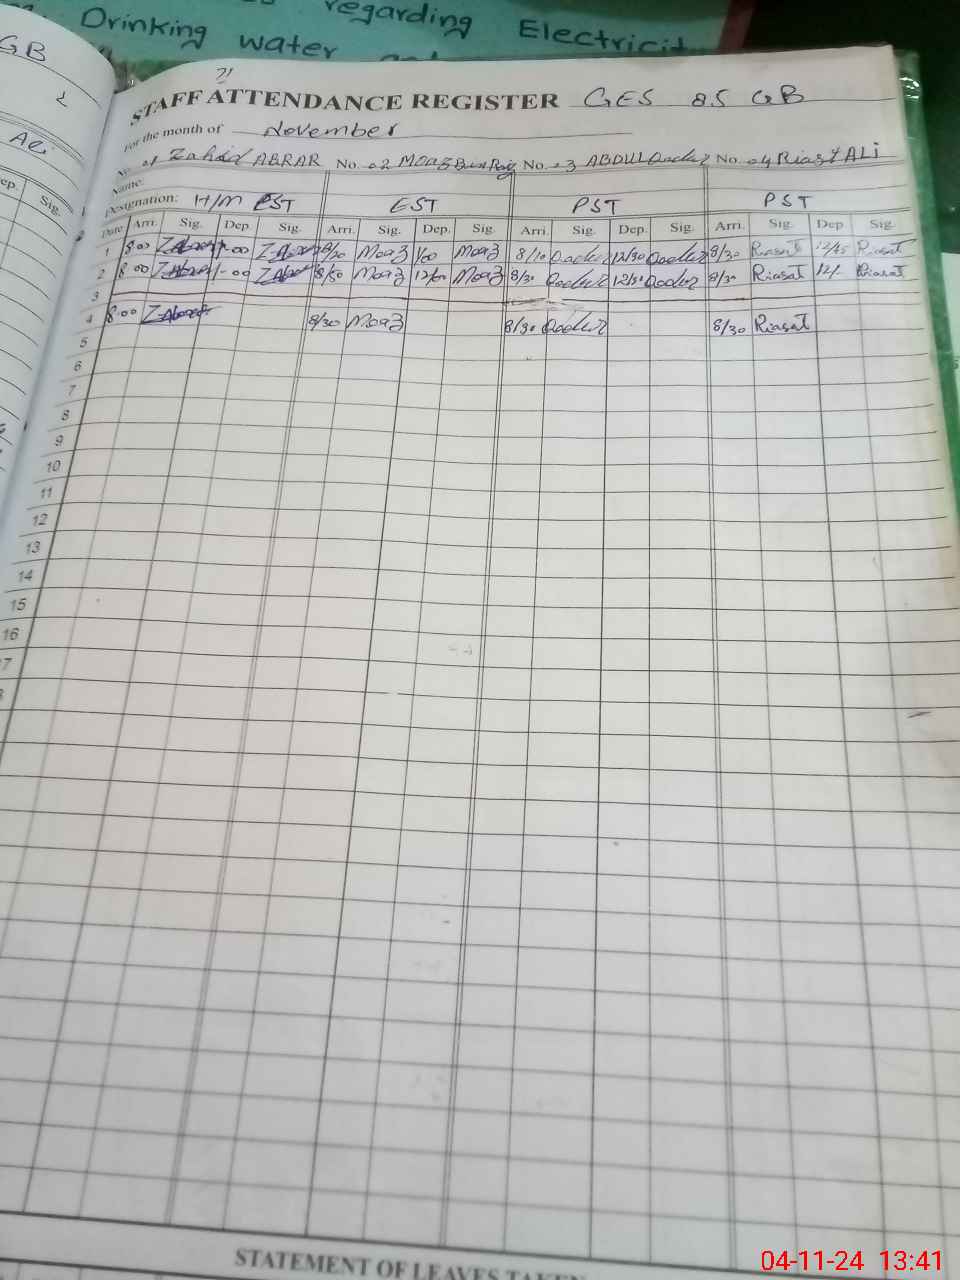 regarding Electricit
Drinking water
GB
Ali
ep. Sig.
STAFF ATTENDANCE REGISTER GES 85 GB
For the month of November
No. 01 Zahid ABRAR No. 02 Moaz No. 03 ABDUL Qadeer No. 04 Riasat ALi
Name:
Designation: H/M EST EST PST PST
Date Arri. Sig. Dep. Sig. Arri. Sig. Dep. Sig. Arri. Sig. Dep. Sig. Arri. Sig. Dep Sig.
1 8:00 ZAbrar 1:00 ZAbrar 8/20 Moaz 1/00 Moaz 8/10 Qadeer 12/30 Qadeer 8/30 Riasat 12/45 Riasat
2 8:00 ZAbrar 1:00 ZAbrar Moaz Moaz 8/30 Qadeer Qadeer 8/30 Riasat 12/- Riasat
3
4 8:00 ZAbrar 8/30 Moaz 8/30 Qadeer 8/30 Riasat
5
6
7
8
9
10
11
12
13
14
15
16
7
STATEMENT OF LEAVES TAKEN
04-11-24 13:41